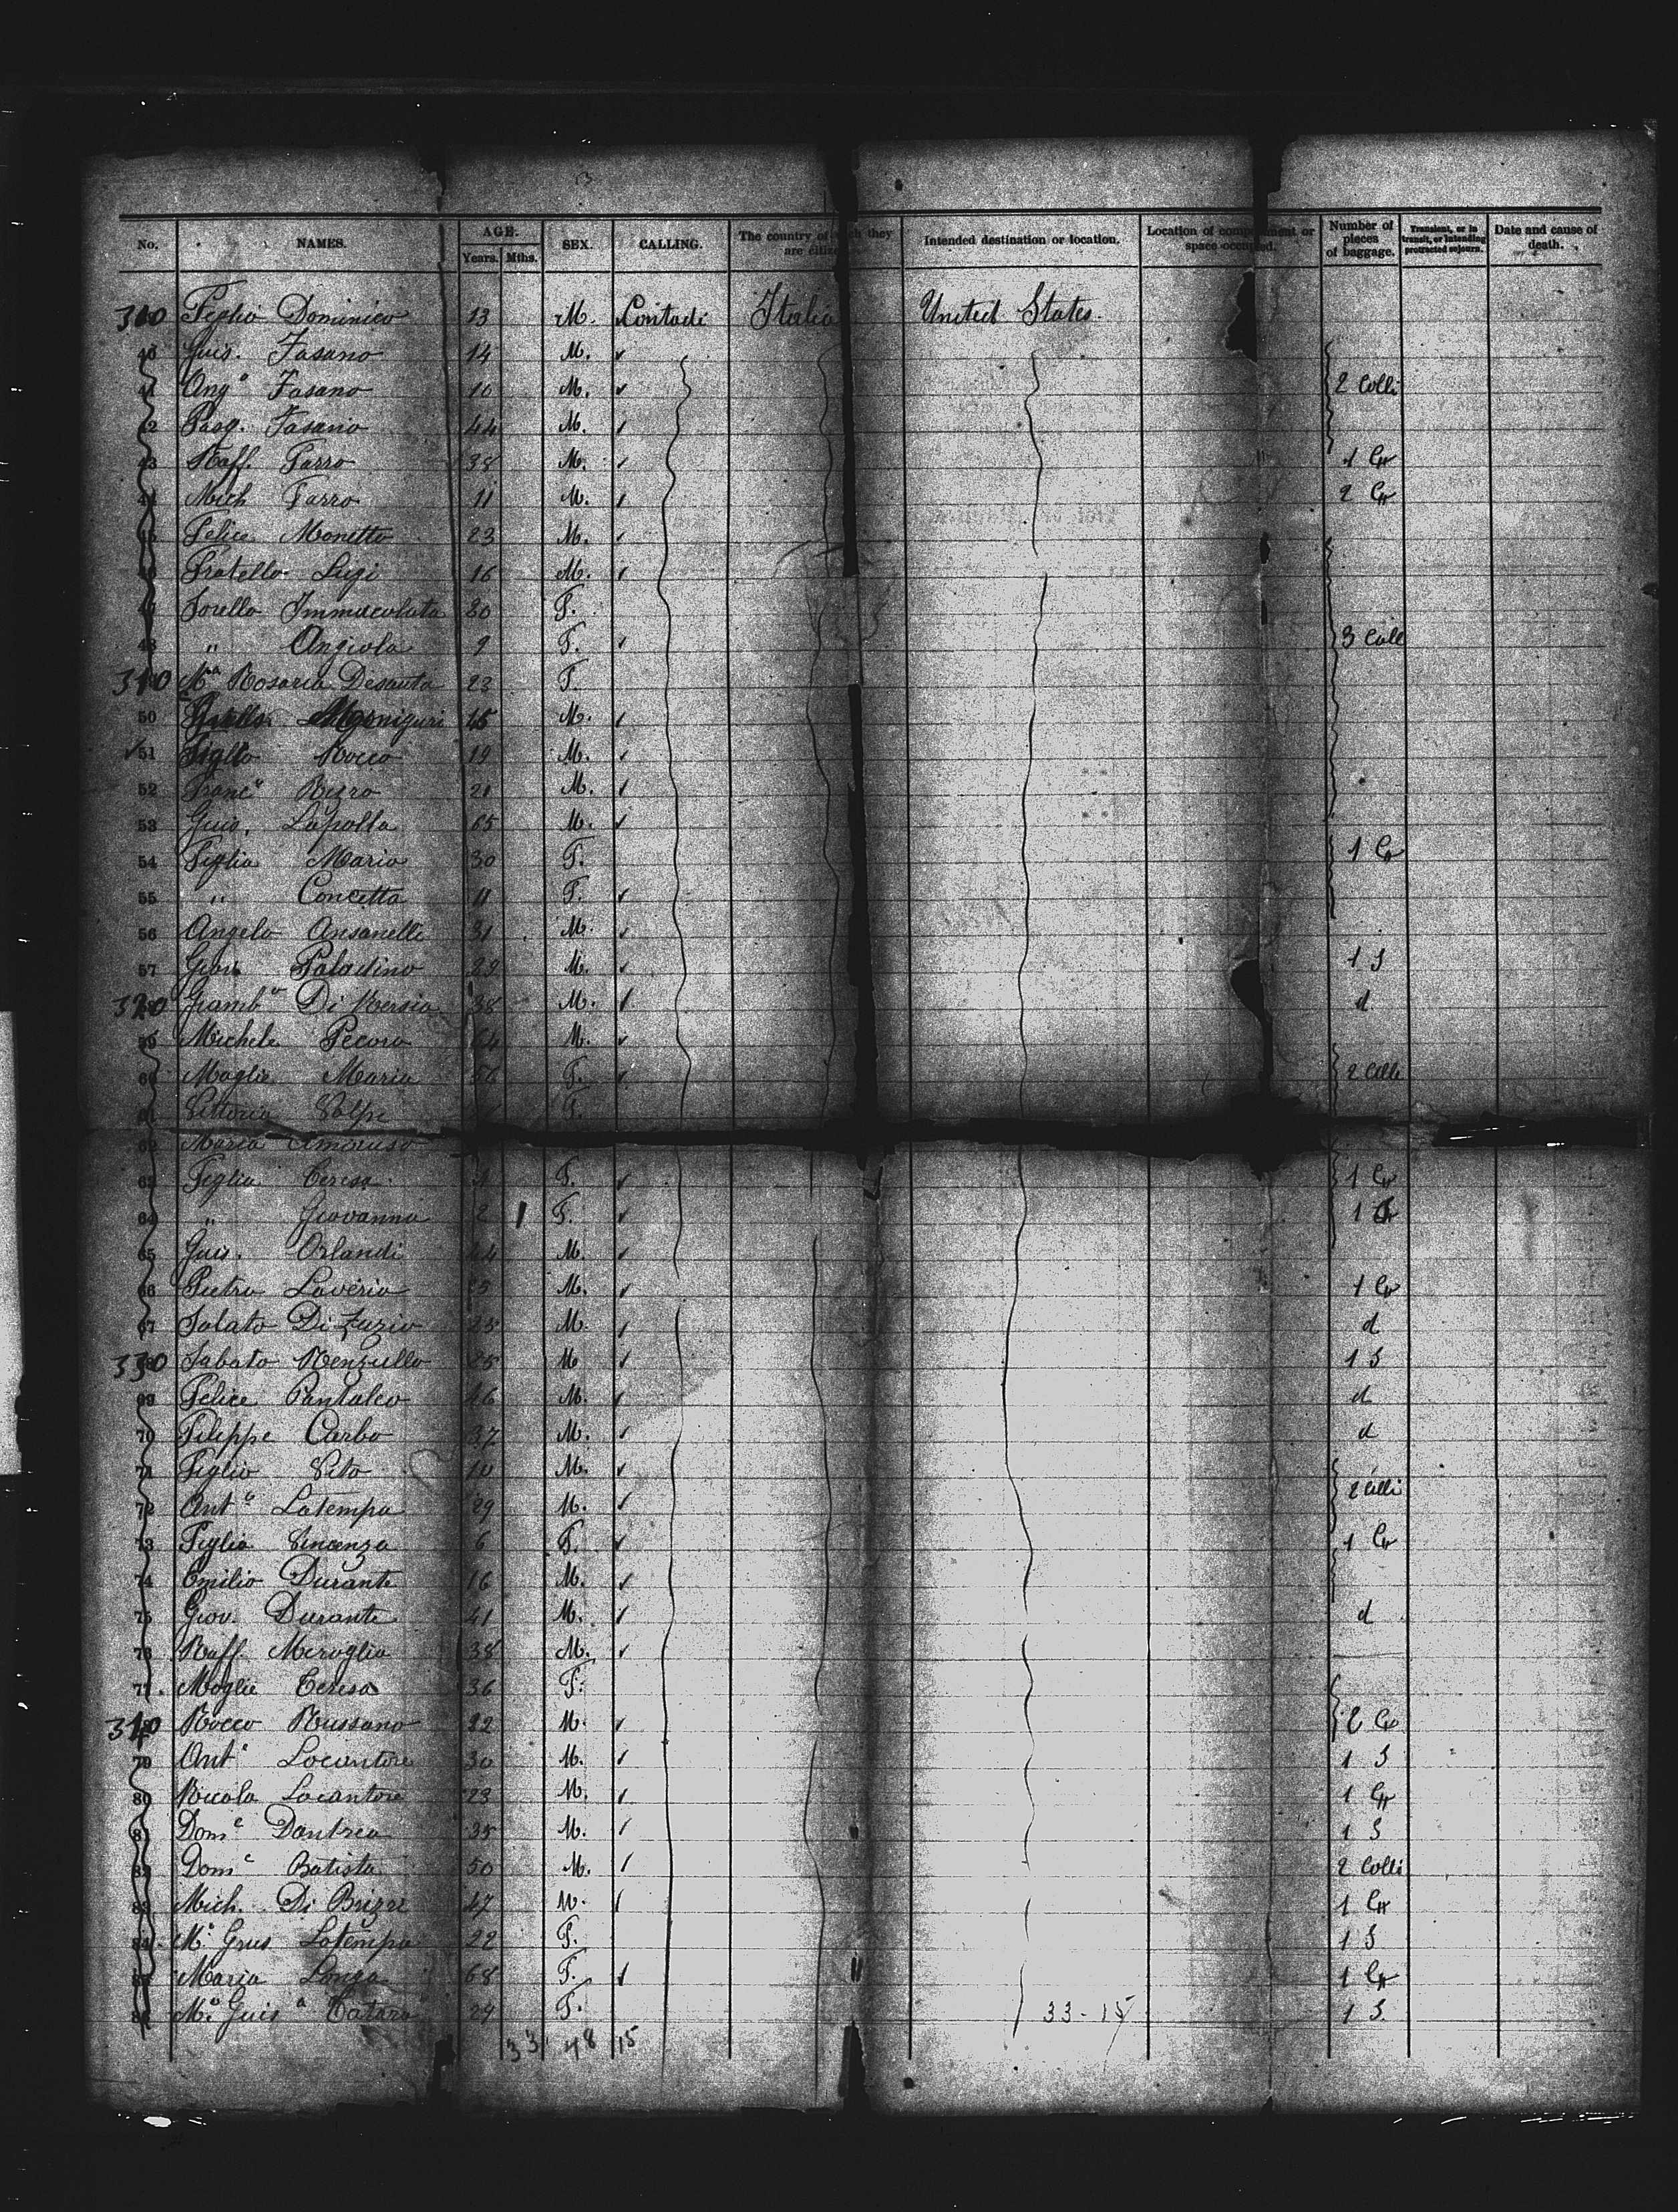 No. NAMES. AGE. Years. Mths. SEX. CALLING. The country of which they are citizens Intended destination or location. Location of compartment or space occupied. Number of pieces of baggage. Transient, or in transit, or intending protracted sojourn. Date and cause of death.
300 Figlio Dominico 13 M. Contadi Italia United States.
40 Guis. Fasano 14 M.
41 Ang° Fasano 10 M. 2 Colli
42 Pasq. Fasano 44 M.
43 Raff. Farro 38 M. 1 Cr
44 Mich Farro 11 M. 2 Cr
45 Felice Monetto 23 M.
46 Fratello Luigi 16 M.
47 Sorella Immacolata 30 F.
48 " Angiola 9 F. 3 Coll
310 Mª Rosaria Desanta 23 F.
50 15 M.
51 Figlio Rocco 19 M.
52 Franc° 21 M.
53 Guis. Lapolla 65 M.
54 Figlia Maria 30 F. 1 Cr
55 " Concetta 11 F.
56 Angelo Ansanelli 31 M.
57 Giov. Paladino 29 M. 1 S
320 Giamb° Di Mersia 38 M. d
59 Michele Pecora 64 M.
60 Moglie Maria 56 F. 2 Colli
61 Vittoria Volpe F.
62 Maria Amoruso
63 Figlia Teresa 4 F. 1 Cr
64 " Giovanna 2 F. 1 Cr
65 Guis. Orlandi 44 M.
66 Pietro Laveria 25 M. 1 Cr
67 Sabato Di Furio 25 M. d
330 Sabato Menzullo 25 M 1 S
69 Felice Pantaleo 46 M. d
70 Filippo Carbo 37 M. d
71 Figlio Vito 10 M.
72 Antª Latempa 29 M. 2 Colli
73 Figlia Vincenza 6 F. 1 Cr
74 Emilio Durante 16 M.
75 Giov. Durante 41 M. d
76 Raff. Meroglia 38 M.
77 Moglie Teresa 36 F.
340 Rocco Russano 22 M. 2 Cr
79 Ant° Locantore 30 M. 1 S
80 Nicola Locantore 23 M. 1 Cr
81 Dom° Dantrea 35 M. 1 S
82 Dom° Batista 50 M. 2 Colli
83 Mich. Di Brizzi 47 M. 1 Cr
84 Mª Grus Latempa 22 F. 1 S
85 Maria Longa 68 F. 1 Cr
86 Mª Guisª Cataro 24 F. 33-15 1 S
33 48 15